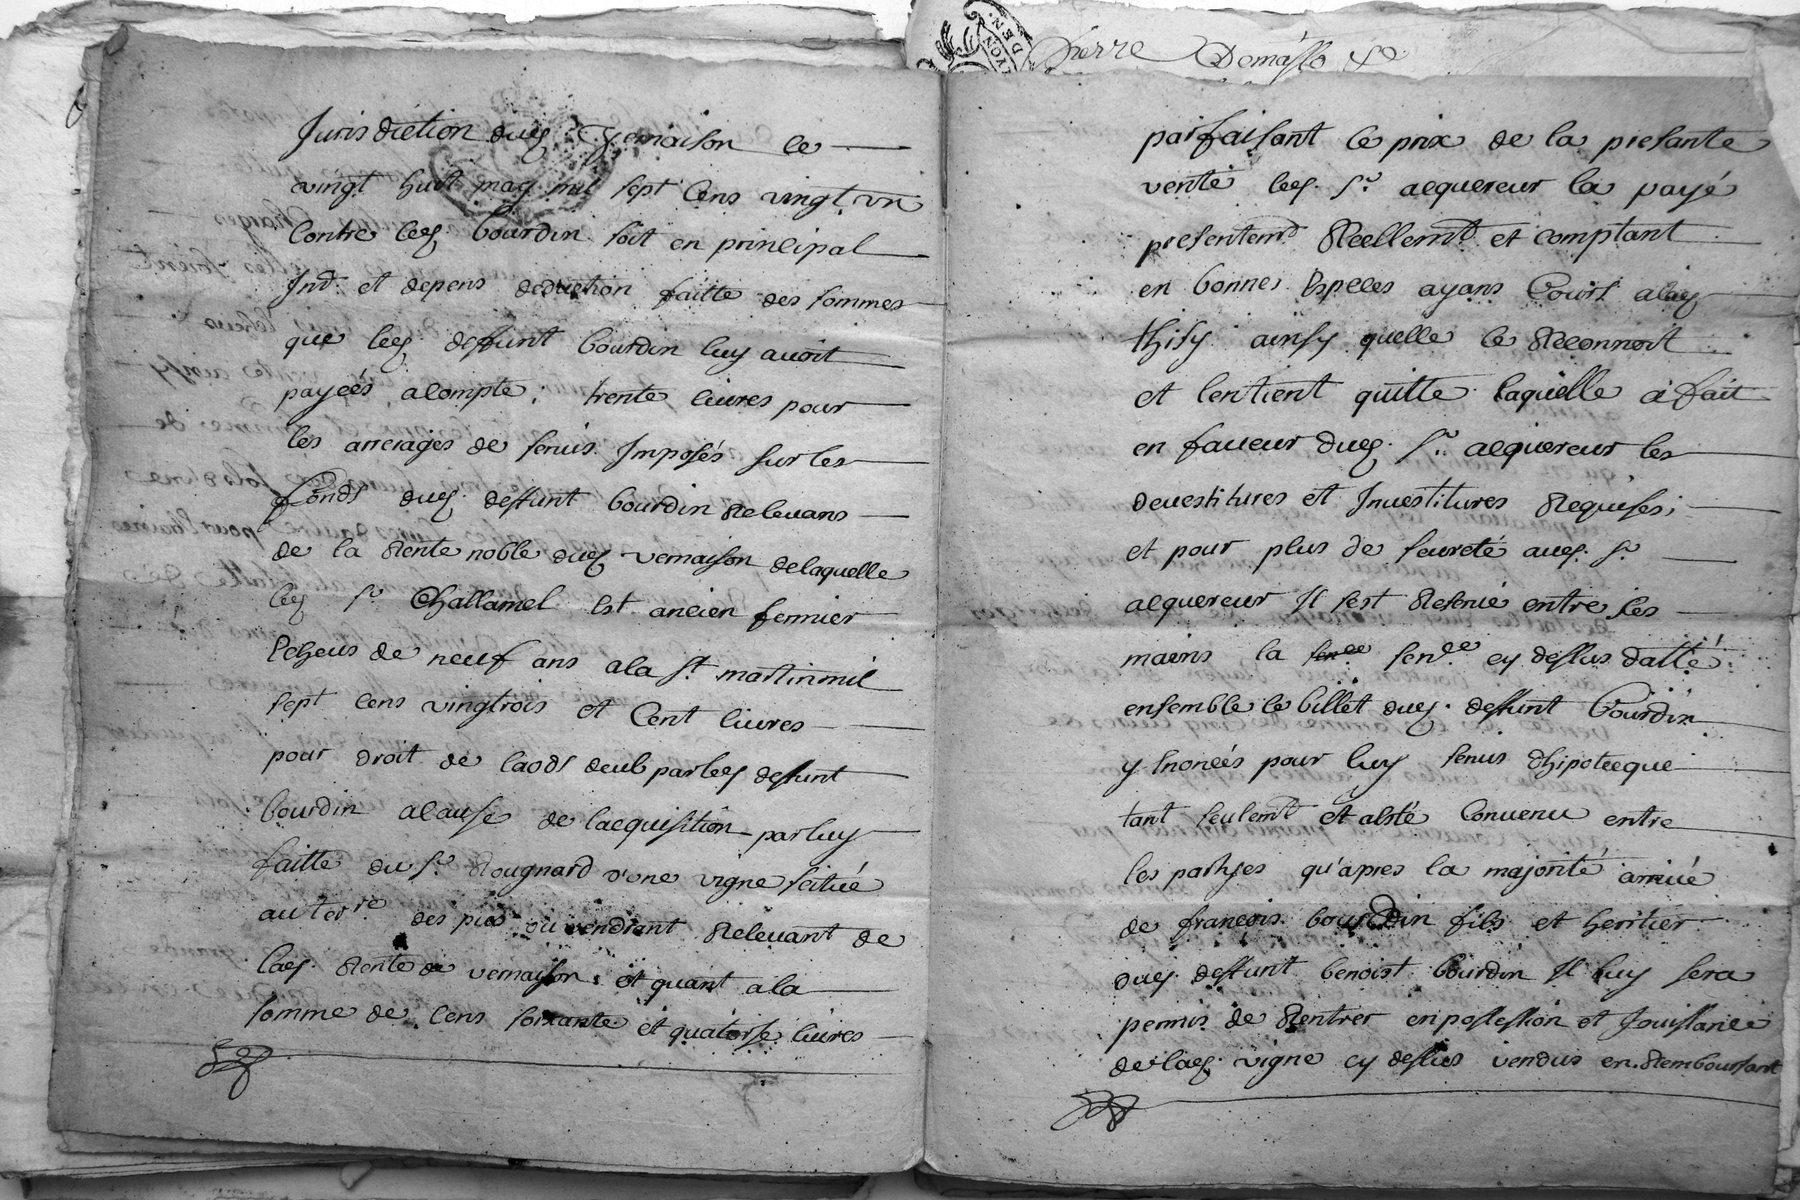 Pierre Demasso
Jurisdiction dud. Vernaison le
vingt huit may mil sept cens vingt un
contre led. bourdin soit en principal
Int. et depens deduction faitte des sommes
que led. deffunt bourdin luy avoit
payeés acompte, trente livres pour
les arrerages de servis Imposés sur les
fonds dud. deffunt bourdin Relevans
de la Rente noble dud. vernaison de laquelle
led. Sr. Challamel est ancien fermier
Echeus de neuf ans a la St. martin mil
sept cens vingtrois et Cent livres
pour droit de laods deub par led. deffunt
bourdin acause de lacquisition par luy
faitte du Sr. Rougnard d'une vigne scitué
au terre. des pies ou vendrant Relevant de
lad. Rente de vernaison, et quant a la
somme de cens soixante et quatorse livres
parfaisant le prix de la presante
vente led. Sr. acquereur la payé
presentemt. Reellemt. et comptant
en bonnes Especes ayans Cours alad.
thisy ainsy quelle le Reconnoit
et lentient quitte laquelle a fait
en faveur dud. Sr. acquereur les
devestitures et Investitures Requises;
et pour plus de seureté aud. Sr.
acquereur Il sest Retenie entre les
mains la senteence cy dessus datté
ensemble le billet dud. deffunt bourdin
y Enoncés pour luy servis dhipotecque
tant seulemt. et a esté Convenu entre
les partyes qu'apres la majorité arrivé
de francois bourdin fils et herritier
dud. deffunt benoist bourdin Il luy sera
permis de Rentrer en possession et Jouissance
de lad. vigne cy dessus vendus en Remboursant